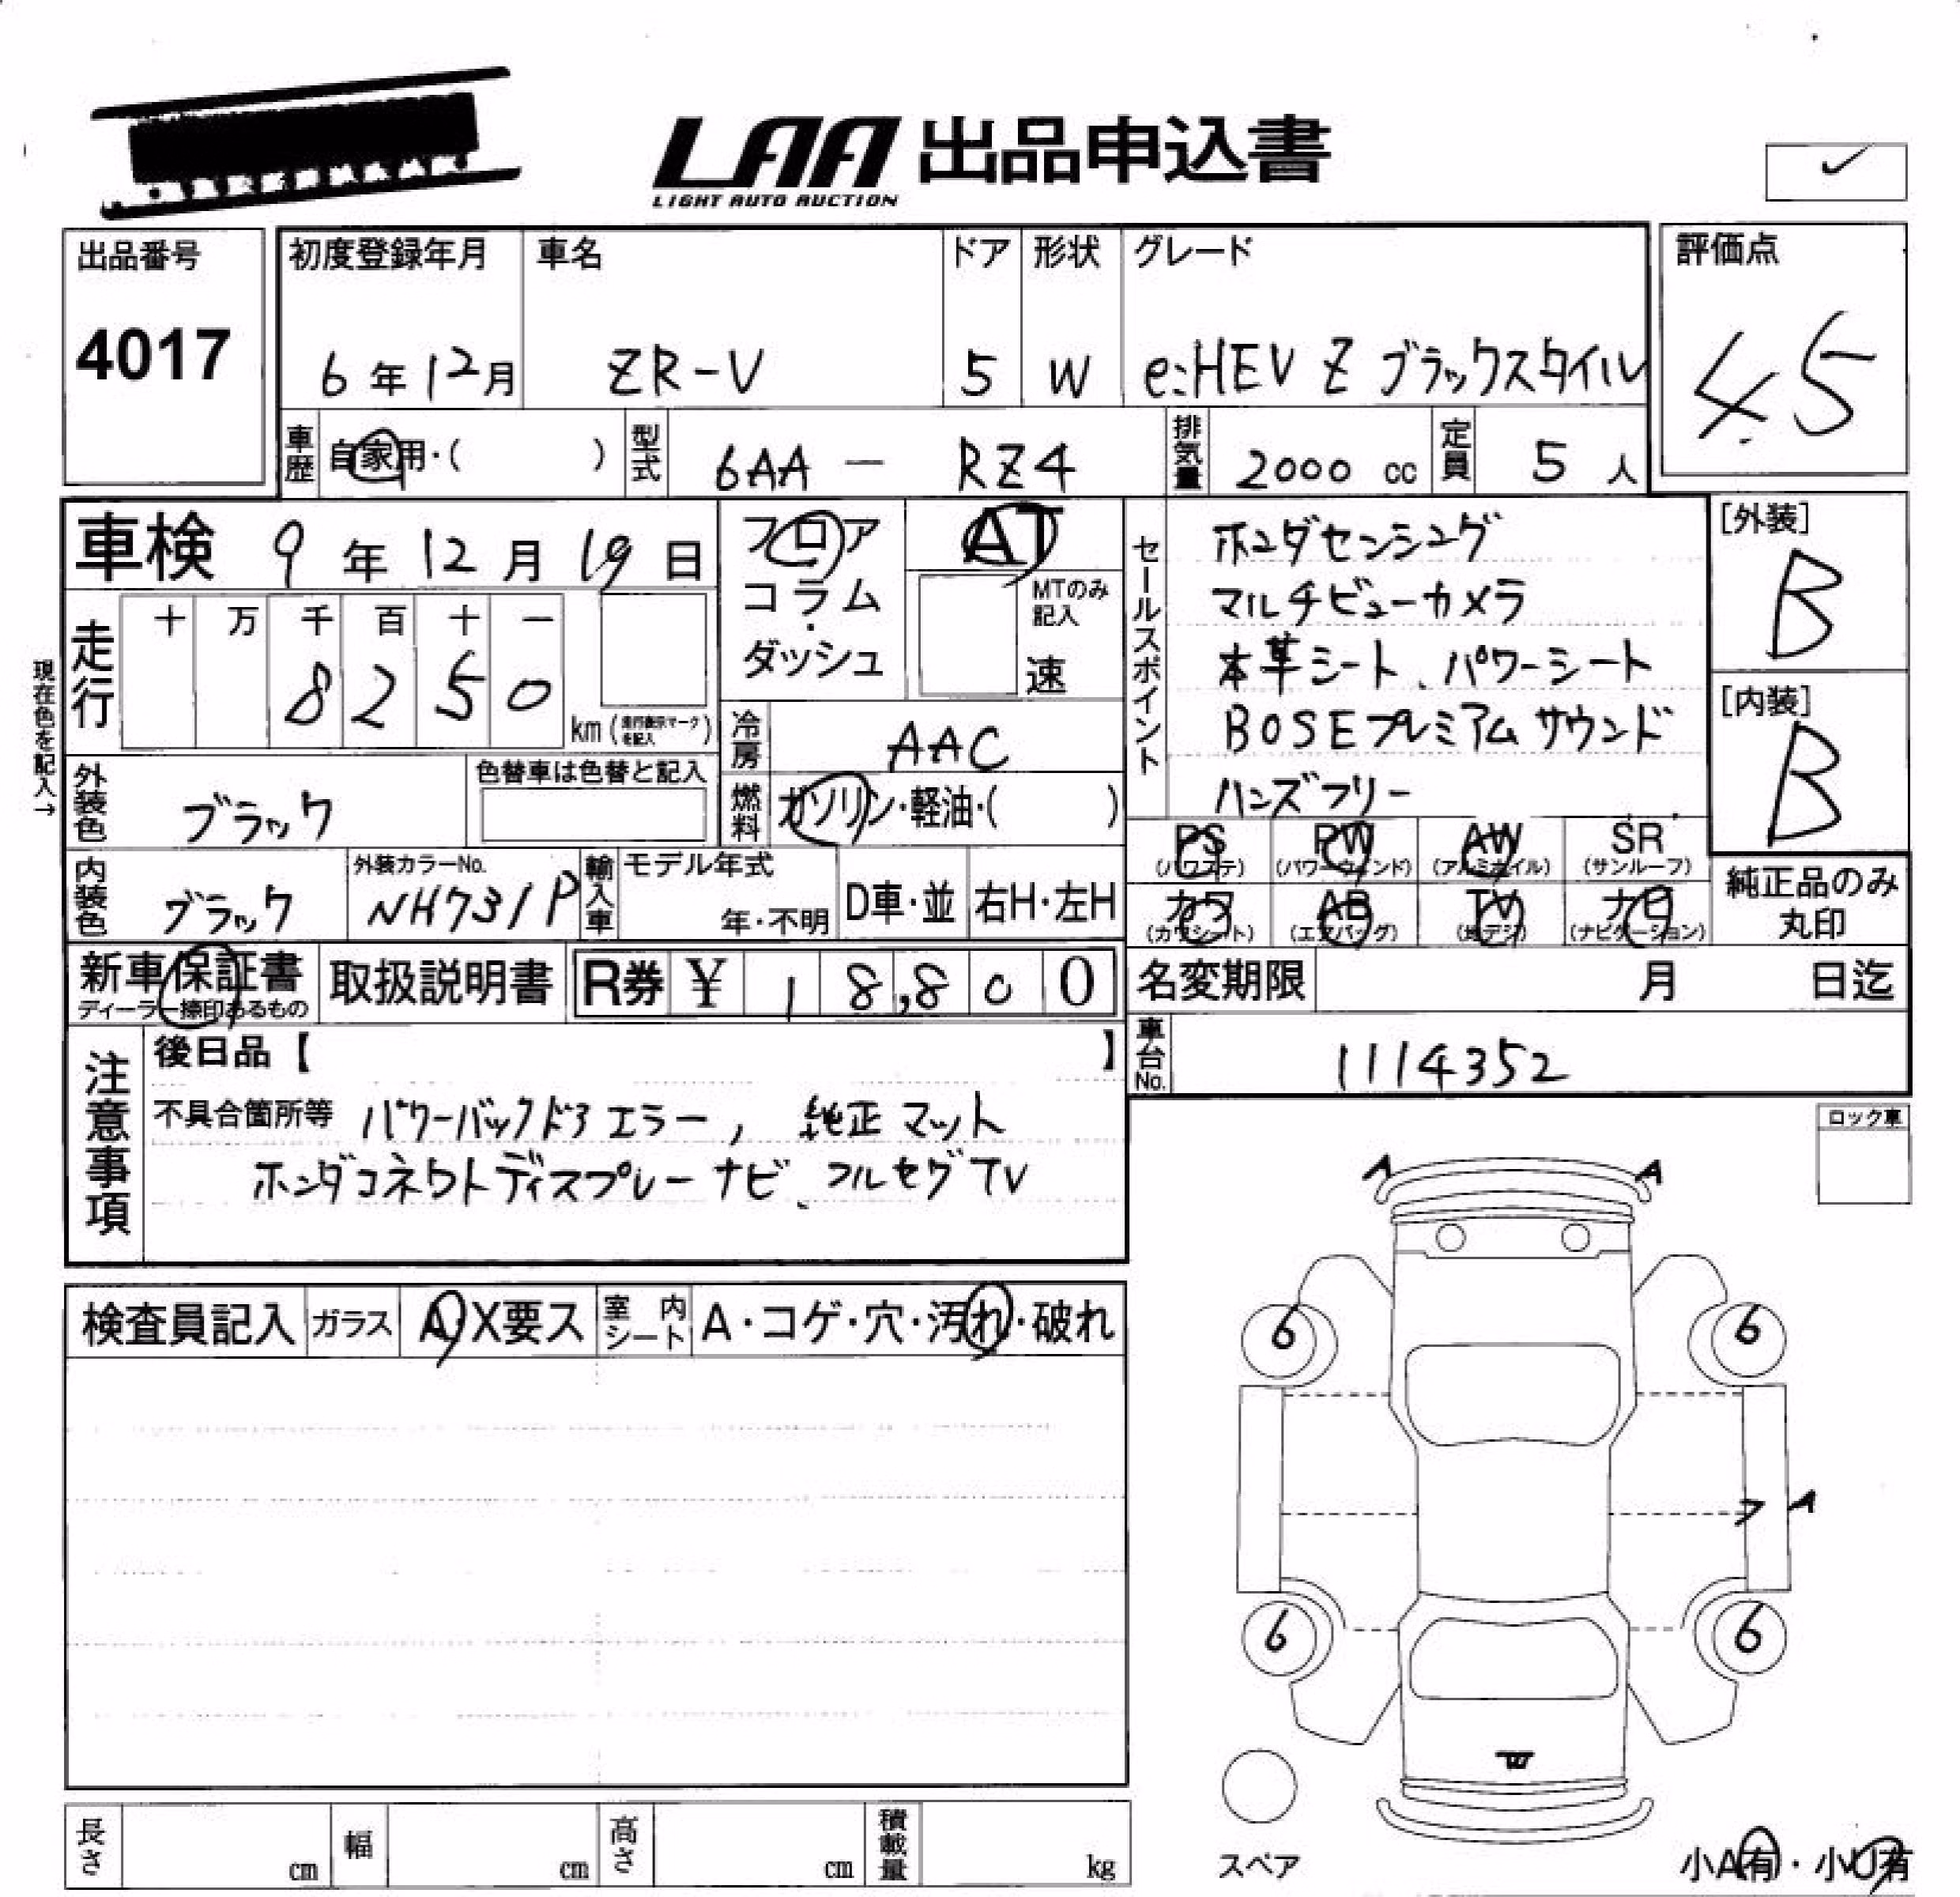 LAA 出品申込書
LIGHT AUTO AUCTION
出品番号 初度登録年月 車名 ドア 形状 グレード 評価点
4017 6年12月 ZR-V 5 W e:HEV Z ブラックスタイル 4.5
車歴 自家用・( ) 型式 6AA - RZ4 排気量 2000 cc 定員 5 人
車検 9年12月19日 フロア AT [外装]
コラム・ MTのみ記入 B
ダッシュ 速
走行 十 万 千 百 十 一
8 2 5 0 km (走行表示マークを記入)
冷房 AAC [内装]
燃料 ガソリン・軽油・( ) B
現在色を記入→
外装色 ブラック 色替車は色替と記入
内装色 ブラック 外装カラーNo. NH731P 輸入車 モデル年式 年・不明 D車・並 右H・左H
セールスポイント
ホンダセンシング
マルチビューカメラ
本革シート、パワーシート
BOSEプレミアムサウンド
ハンズフリー
PS (パワステ) PW (パワーウィンド) AW (アルミホイル) SR (サンルーフ)
カワ (カワシート) AB (エアバッグ) TV (地デジ) ナビ (ナビゲーション) 純正品のみ丸印
新車保証書 ディーラー捺印あるもの 取扱説明書 R券 ¥ 1 8,8 0 0 名変期限 月 日迄
注意事項 後日品【 】 車台No. 1114352
不具合箇所等 パワーバックドアエラー, 純正マット
ホンダコネクトディスプレーナビ、フルセグTV
ロック車
A A
検査員記入 ガラス A・X要ス 室内シート A・コゲ・穴・汚れ・破れ
6 6
A
6 6
W
スペア
小A有・小U有
長さ cm 幅 cm 高さ cm 積載量 kg